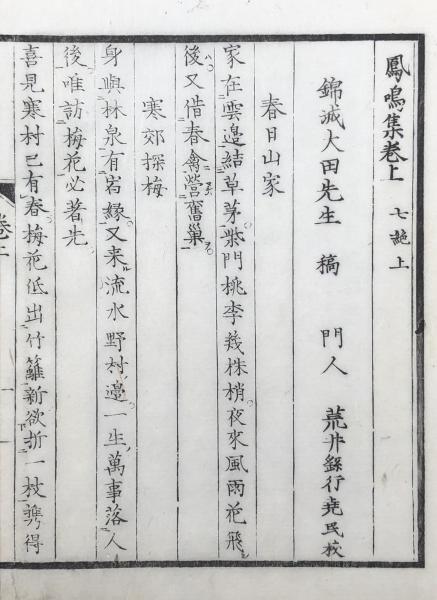 鳳鳴集卷上　七絶上
錦城大田先生　稿　門人　荒井銀行堯民校
春日山家
家在雲邉結草茅柴門桃李幾株梢夜來風雨花飛
後又借春禽營舊巢
寒郊探梅
身與林泉有宿緣又来流水野村邉一生萬事落人
後唯訪梅花必著先
喜見寒村已有春梅花低出竹籬新欲折一枝携得